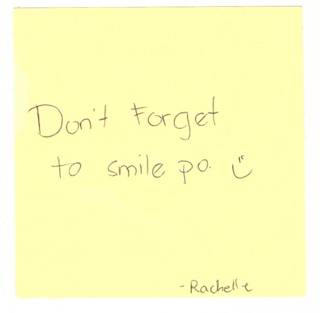 Don't Forget
to smile po. ツ
- Rachelle